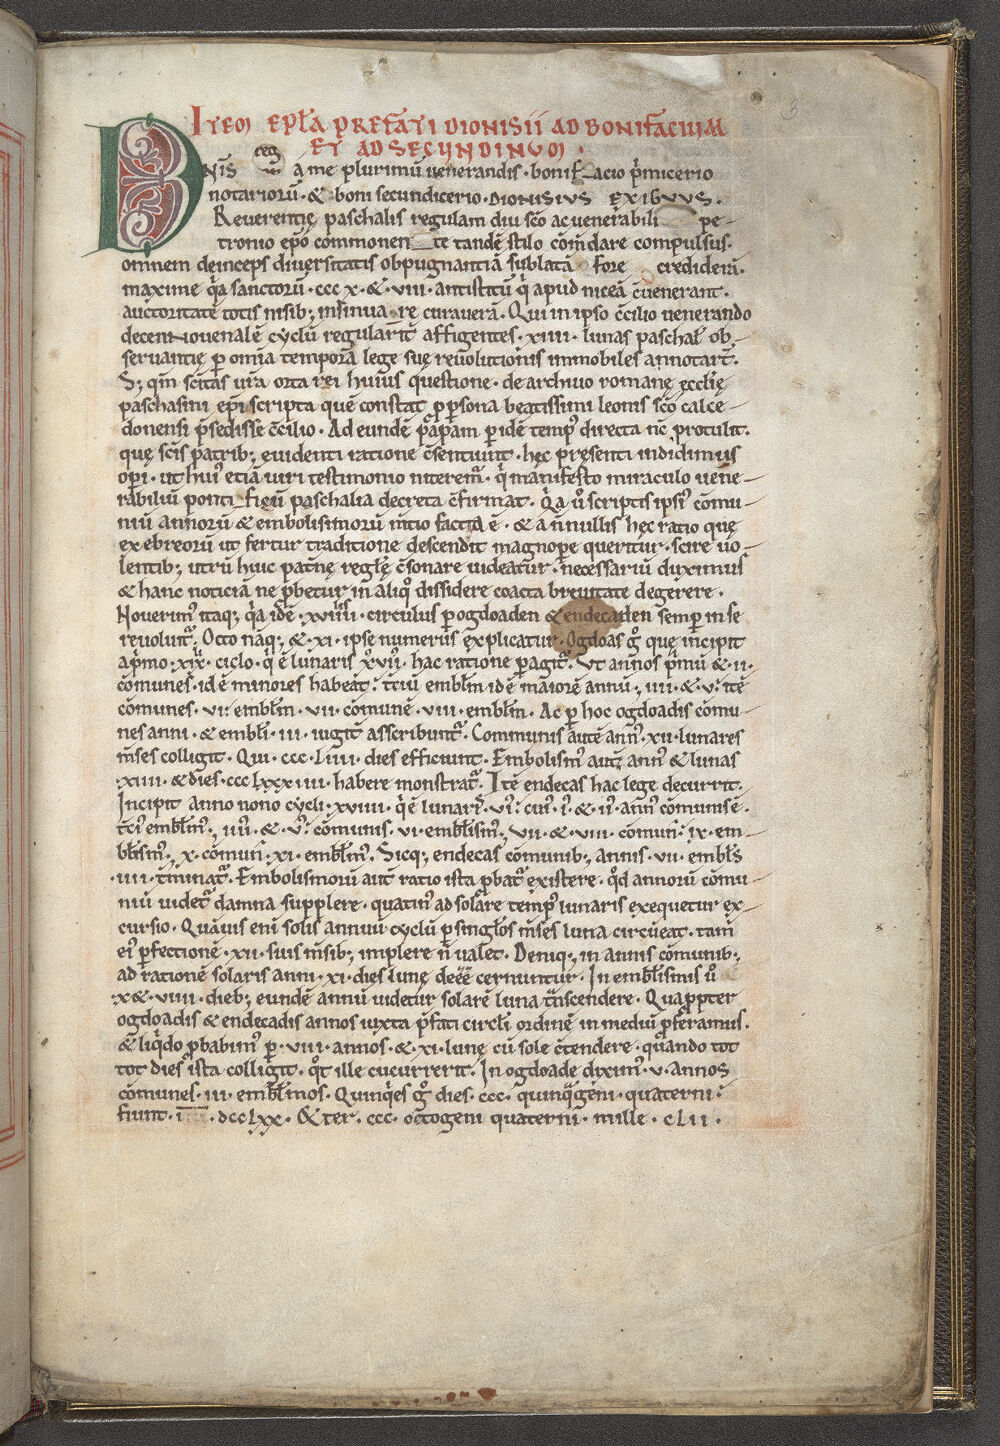 ITEM EPL̄A PREFATI DIONISII AD BONIFACIUM
ET AD SECUNDINUM .
DN̄IS a me plurimū uenerandis · bonifacio p̄micerio
notariorū · & boni secundicerio · DIONISIUS EXIGUUS .
Reuerentię paschalis regulam diu sc̄o ac uenerabili pe-
tronio ep̄o commonente tandē stilo cōm̄dare compulsus.
omnem deinceps diuersitatis obpugnantiā sublatā fore crediderā.
maxime q̇a sanctorū · ccc x · & · viii · antistitū q̇ apud niceā c̄uenerant .
auctoritatē totis nisib; insinuare curauerā . Qui in ipso c̄cilio uenerando
decennouenalē cyclū regularit̄ affigentes · xiiii · lunas paschal̄ ob-
seruantię ꝑ om̄ia tempora lege suę reuolutionis immobiles annotar̄t.
S; qm̄ sc̄itas ur̄a orta rei huius questione · de archiuo romanę ęccl̄ię
paschasini ep̄i scripta quē constat ꝑ ꝑsona beatissimi leonis sc̄o calce-
donensi p̄sedisse c̄cilio . Ad eundē p̄apam ꝑ idē temp᷒ directa nc̄ protulit.
quę sc̄is patrib; euidenti ratione c̄sentiunt · hęc pręsenti indidimus
op̄i · ut hui᷒ etiā uiri testimonio niterem̄ · q̇ manifesto miraculo uene-
rabiliū pontificū paschalia decreta c̄firmat · Q̇a u̇o scriptis ipsi᷒ cōmu-
niū annorū & embolismorū m̄tio facta ē · & a n̄nullis hęc ratio quę
ex ebreorū ut fertur traditione descendit magnopere queritur · scire uo-
lentib; utrū huic pat̄nę reglę c̄sonare uideatur · necessariū duximus
& hanc noticiā ne p̄betur in aliq̊ dissidere coacta breuitate degerere .
Nouerim᷒ itaq; q̇a idē · xviiii · circulus ꝑ ogdoaden & endecaden semꝑ in se
reuoluit᷑ . Octo naq; & · xi · ipse numerus explicatur . Ogdoas g̊ quę incipit
a p̄mo · xix · ciclo · q̇ ē lunaris xvii · hac ratione ꝑagit᷑ . Ut annos p̄mū & · ii ·
cōmunes · id ē minores habeat : t̄ciū embl̄m id ē maiorē annū ; iiii · & · v · itē
cōmunes · vi · embl̄m · vii · cōmunē · viii · embl̄m . Ac ꝑ hoc ogdoadis cōmu-
nes anni · & embl̄i · iii · iugit̄ asscribunt᷑ . Communis autē ann᷒ · xii · lunares
m̄ses colligit . Qui · ccc · Liiii · dies efficiunt . Embolism᷒ aut̄ ann᷒ & lunas
xiii · & dies · ccc lxxxiiii · habere monstrat᷑ . Itē endecas hac lege decurrit.
Incipit anno nono cycli · xviiii · q̇ ē lunar̄ · vi : cui᷒ · i · & · ii · ann᷒ cōmunis ē ·
t̄ci᷒ embl̄m᷒ ; iiii · & · v · cōmunis · vi · embl̄ism᷒ ; vii · & · viii · comun̄ : ix · em-
bl̄ism᷒ ; x · comun̄ : xi · embl̄m᷒ . Sicq; endecas cōmunib; annis · vii · embl̄s
· iiii · t̄minat᷑ . Embolismorū aut̄ ratio ista ꝓbat᷑ existere · q̊d annorū cōmu-
niū uidet᷑ damna supplere · quatin᷒ ad solarē temp᷒ lunaris exequetur ex-
cursio . Quāuis enī solis annuū cyclū ꝑ singl̄os m̄ses luna circūeat · tam̄
ei᷒ ꝑfectionē · xii · suis m̄sib; implere n̄ ualet . Deniq; in annis cōmunib;
ad rationē solaris anni · xi · dies lunę deēē cernuntur . In embl̄ismis u̇o
x & · viiii · dieb; eundē annū uidetur solarē luna t̄nscendere . Quaꝓpter
ogdoadis & endecadis annos iuxta p̄fati circli ordinē in mediū ꝓferamus.
& liq̇do ꝓbabim᷒ ꝑ · viii · annos · & · xi · lunę cū sole c̄tendere · quando tot
tot dies ista colligit · q̊t ille cucurrerit . In ogdoade dixim᷒ · v · annos
cōmunes · iii · embl̄mos . Quinq̇es g̊ dies · ccc · quinq̇geni · quaterni ·
fiunt · dcclxx · & ter · ccc · octogeni quaterni · mille · cLii ·